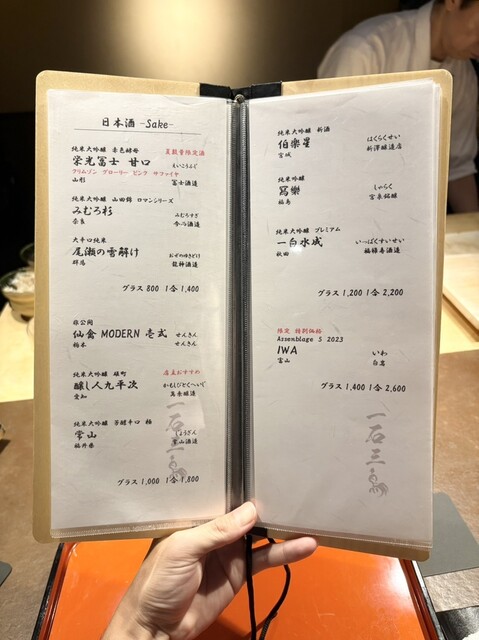 日本酒 -Sake-
純米大吟醸 赤色酵母 夏数量限定酒
栄光冨士 甘口 えいこうふじ
クリムゾン グローリー ピンク サファイヤ
山形 冨士酒造
純米大吟醸 山田錦 ロマンシリーズ
みむろ杉 みむろすぎ
奈良 今西酒造
大辛口純米
尾瀬の雪解け おぜのゆきどけ
群馬 龍神酒造
グラス 800 1合 1,400
非公開
仙禽 MODERN 壱式 せんきん
栃木 せんきん
純米大吟醸 雄町 店主おすすめ
醸し人九平次 かもしびとくへいじ
愛知 萬乗醸造
純米大吟醸 芳醇辛口 極
常山 じょうざん
福井県 常山酒造
グラス 1,000 1合 1,800
一石三
純米大吟醸 新酒
伯楽星 はくらくせい
宮城 新澤醸造店
純米吟醸
冩樂 しゃらく
福島 宮泉銘醸
純米大吟醸 プレミアム
一白水成 いっぱくすいせい
秋田 福禄寿酒造
グラス 1,200 1合 2,200
限定 特別価格
Assemblage 5 2023
IWA いわ
富山 白岩
グラス 1,400 1合 2,600
一石三